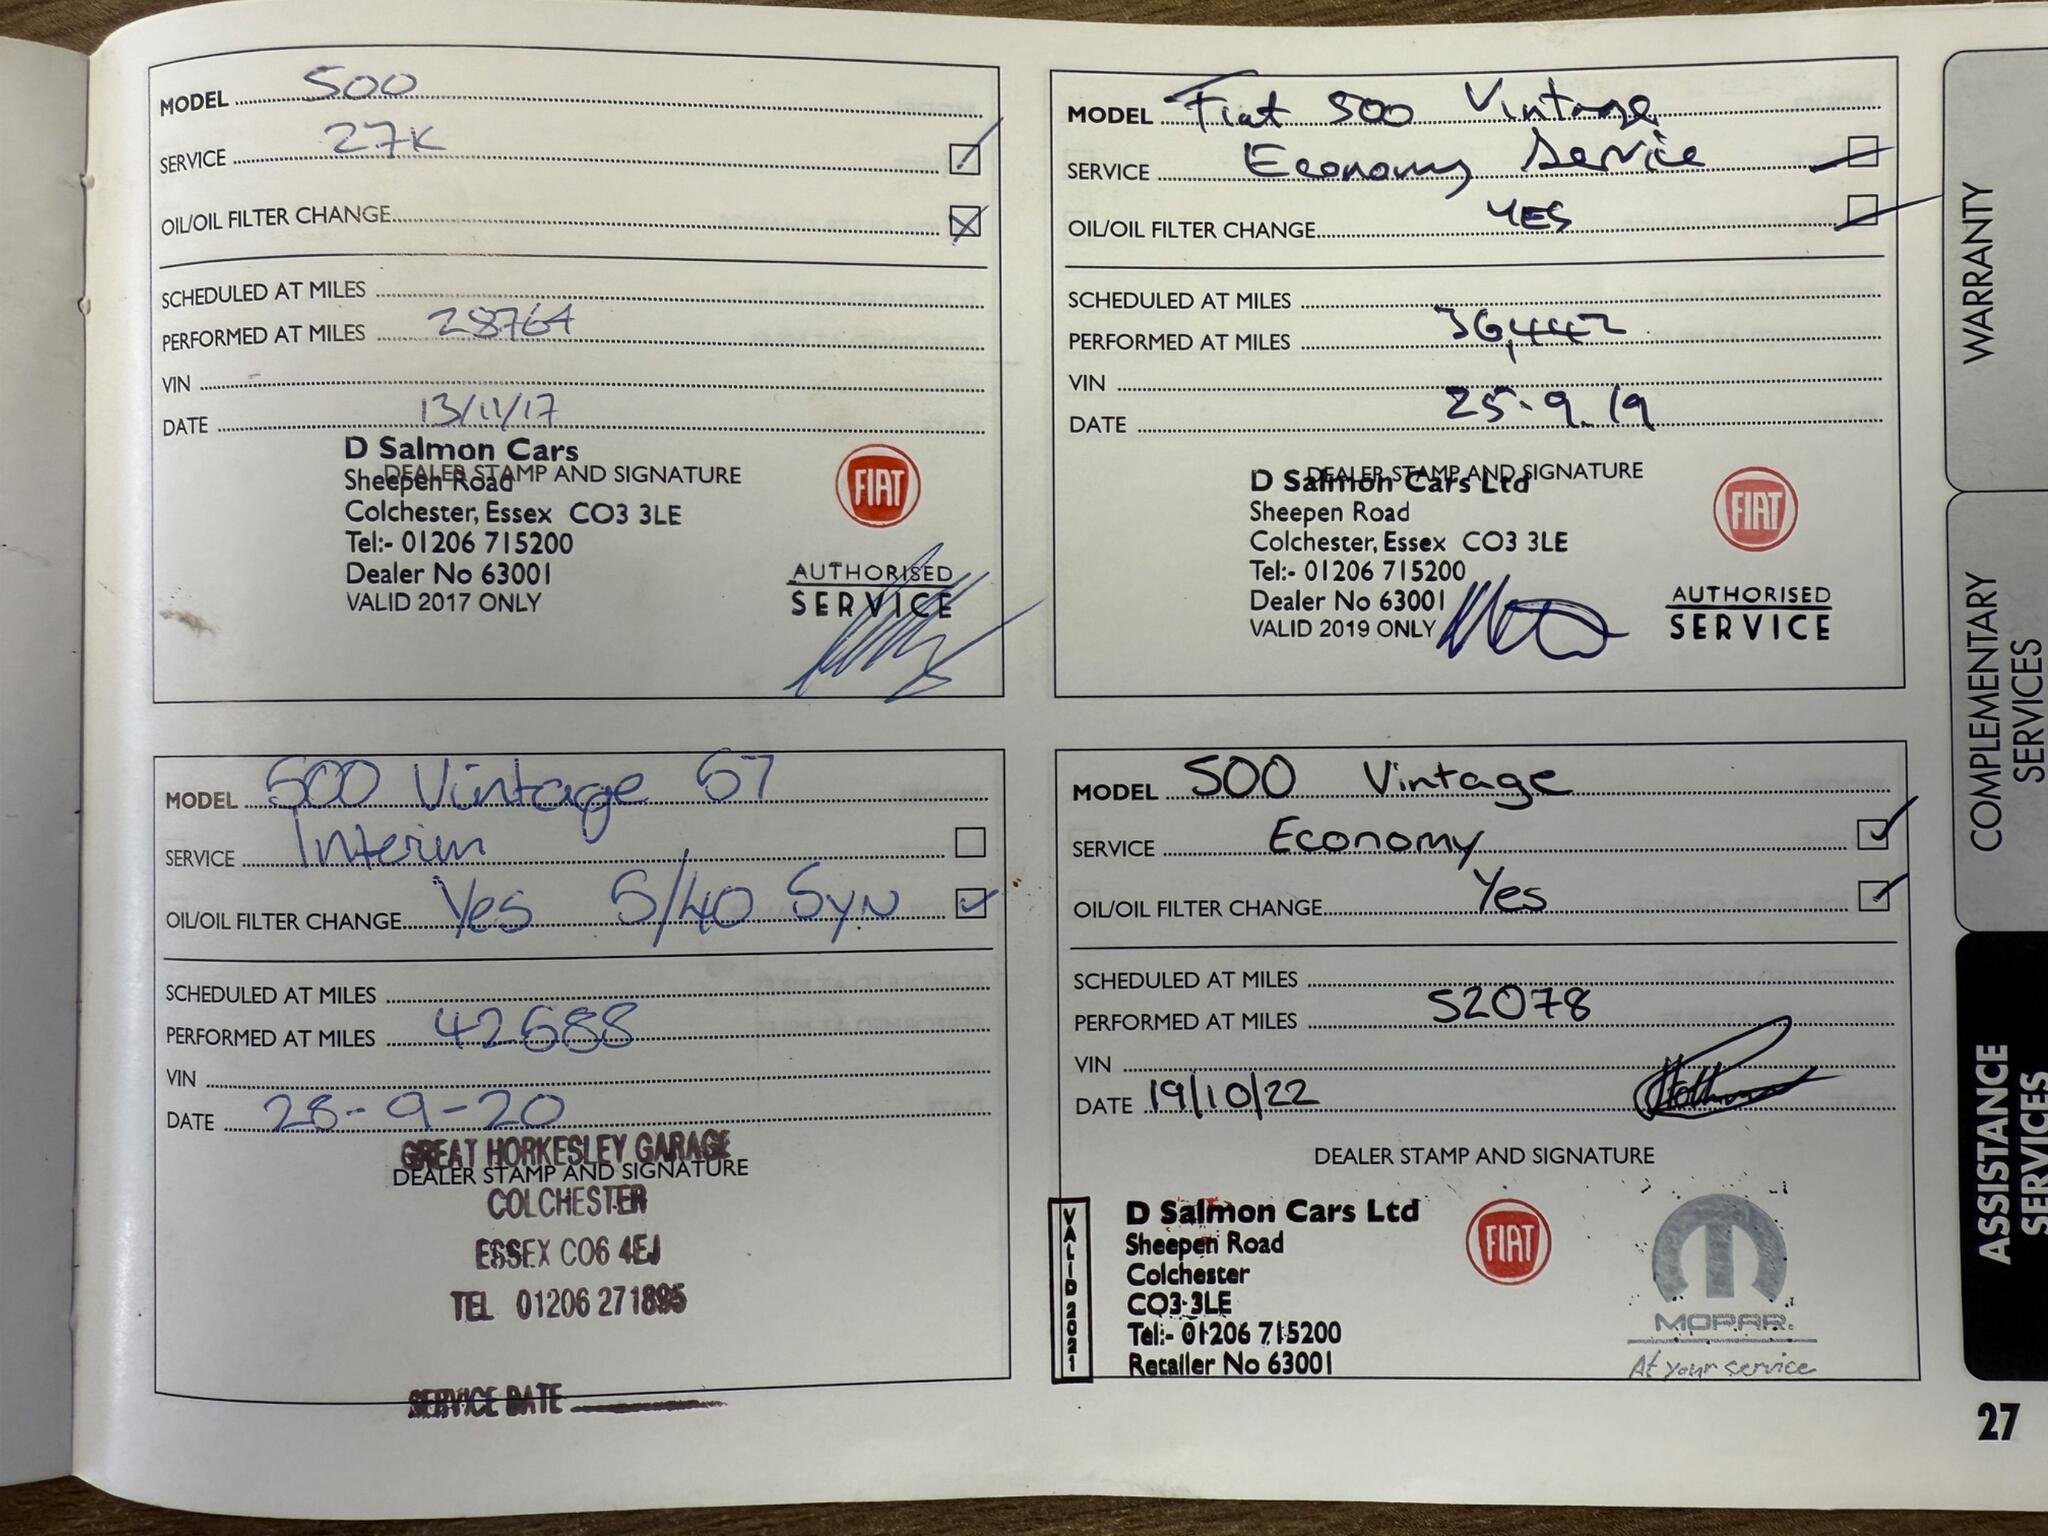 MODEL 500
SERVICE 27K
OIL/OIL FILTER CHANGE
SCHEDULED AT MILES
PERFORMED AT MILES 28764
VIN
DATE 13/11/17
DEALER STAMP AND SIGNATURE
D Salmon Cars
Sheepen Road
Colchester, Essex CO3 3LE
Tel:- 01206 715200
Dealer No 63001
VALID 2017 ONLY
FIAT
AUTHORISED
SERVICE
MODEL Fiat 500 Vintage
SERVICE Economy Service
OIL/OIL FILTER CHANGE YES
SCHEDULED AT MILES
PERFORMED AT MILES 36,442
VIN
DATE 25.9.19
DEALER STAMP AND SIGNATURE
D Salmon Cars Ltd
Sheepen Road
Colchester, Essex CO3 3LE
Tel:- 01206 715200
Dealer No 63001
VALID 2019 ONLY
FIAT
AUTHORISED
SERVICE
MODEL 500 Vintage 57
SERVICE Interim
OIL/OIL FILTER CHANGE Yes 5/40 Syn
SCHEDULED AT MILES
PERFORMED AT MILES 42688
VIN
DATE 28-9-20
GREAT HORKESLEY GARAGE
DEALER STAMP AND SIGNATURE
COLCHESTER
ESSEX CO6 4EJ
TEL 01206 271895
SERVICE DATE
MODEL 500 Vintage
SERVICE Economy
OIL/OIL FILTER CHANGE Yes
SCHEDULED AT MILES
PERFORMED AT MILES 52078
VIN
DATE 19/10/22
DEALER STAMP AND SIGNATURE
VALID 2021
D Salmon Cars Ltd
Sheepen Road
Colchester
CO3 3LE
Tel:- 01206 715200
Retailer No 63001
FIAT
MOPAR.
At your service
WARRANTY
COMPLEMENTARY
SERVICES
ASSISTANCE
SERVICES
27